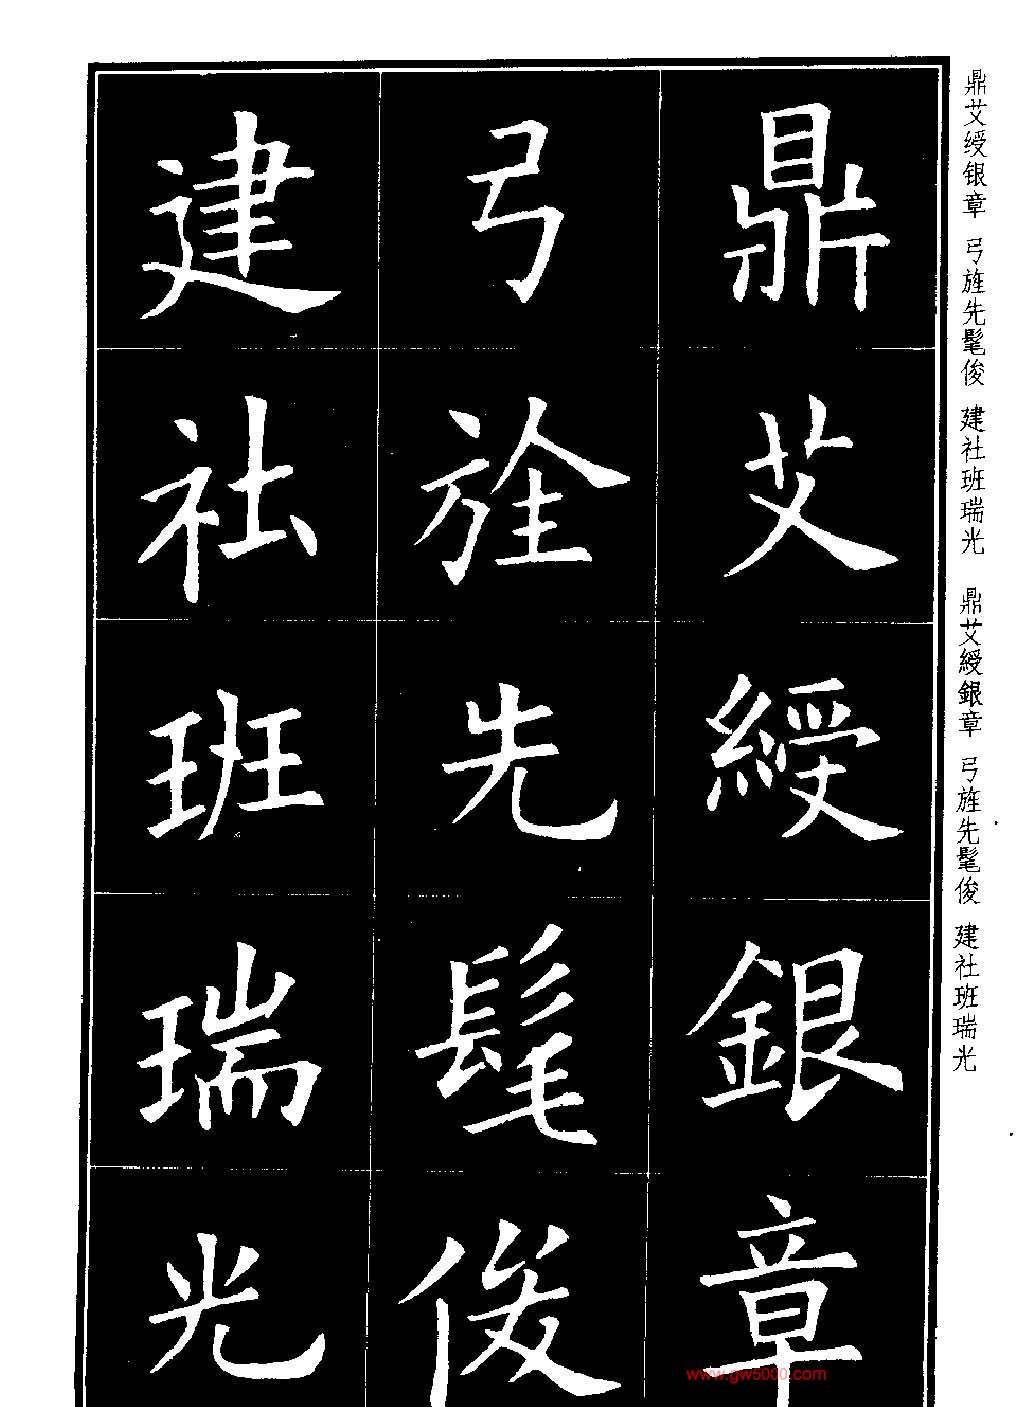 鼎艾綬銀章
弓旌先髦俊
建社班瑞光
鼎艾绶银章 弓旌先髦俊 建社班瑞光
鼎艾綬銀章 弓旌先髦俊 建社班瑞光
www.gw5000.com